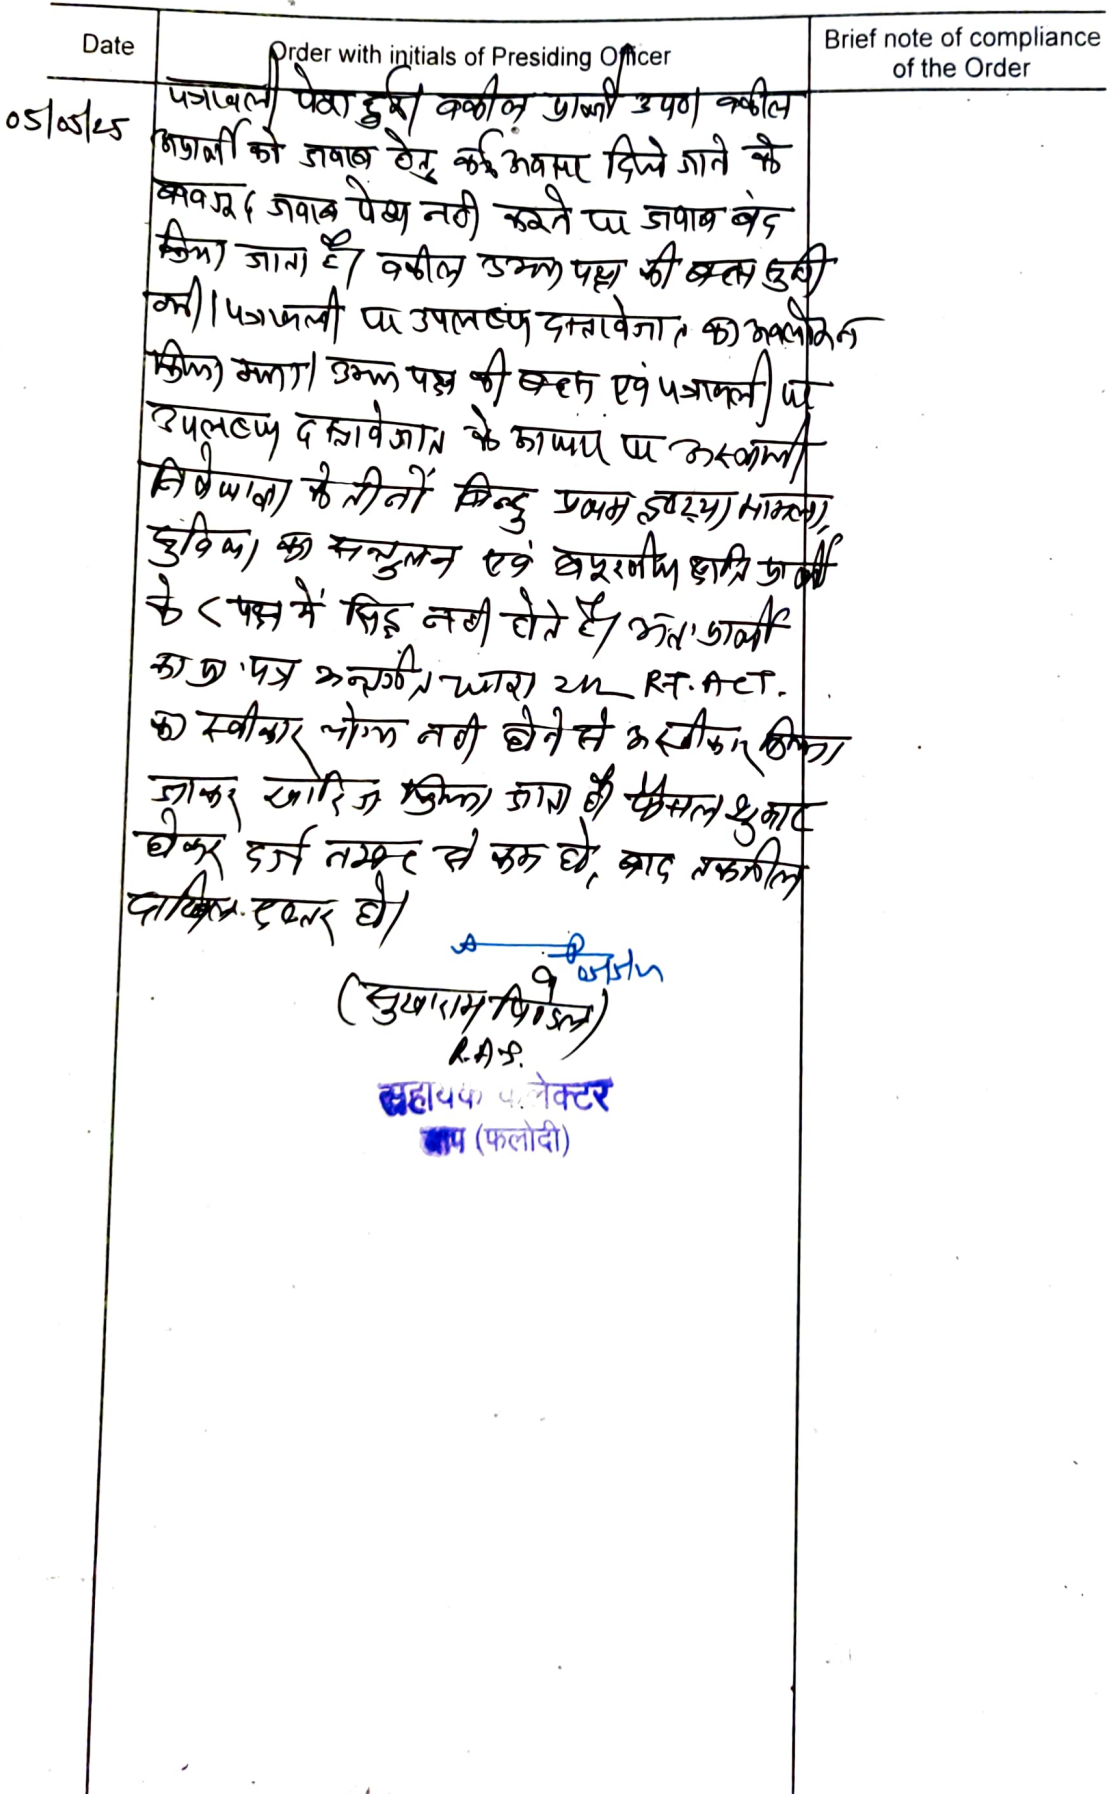 Date
Order with initials of Presiding Officer
Brief note of compliance
of the Order
05/05/25
पत्रावली पेश हुई। वकील प्रार्थी उप०। वकील
अप्रार्थी को जवाब हेतु कई अवसर दिये जाने के
बावजूद जवाब पेश नही करने पर जवाब बंद
किया जाता है। वकील उभय पक्ष की बहस सुनी
गयी। पत्रावली पर उपलब्ध दस्तावेजात का अवलोकन
किया गया। उभय पक्ष की बहस एवं पत्रावली पर
उपलब्ध दस्तावेजात के आधार पर अस्थायी
निषेधाज्ञा के तीनों बिन्दु प्रथम दृष्टया मामला,
सुविधा का सन्तुलन एवं अपूरणीय क्षति प्रार्थी
के पक्ष में सिद्ध नही होते है। अतः प्रार्थी
का प्रा० पत्र अन्तर्गत धारा 212 R.T. ACT.
का स्वीकार योग्य नही होने से अस्वीकार किया
जाकर खारिज किया जाता है। फैसल शुमार
होकर दर्ज नम्बर से कम हो, बाद तकमील
दाखिल दफ्तर हो।
(सुखाराम पिण्डेल)
R.A.S.
सहायक कलेक्टर
बाप (फलोदी)